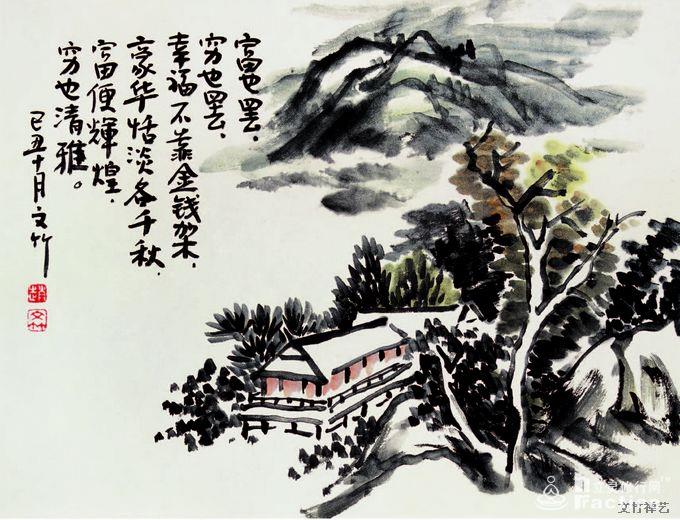 富也罢，
穷也罢，
幸福不靠金钱架，
豪华恬淡各千秋，
富便辉煌，
穷也清雅。
己丑十月文竹
文竹禅艺